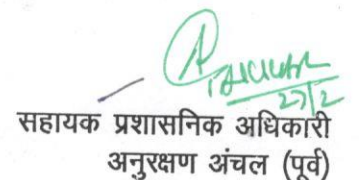 27/2
सहायक प्रशासनिक अधिकारी
अनुरक्षण अंचल (पूर्व)